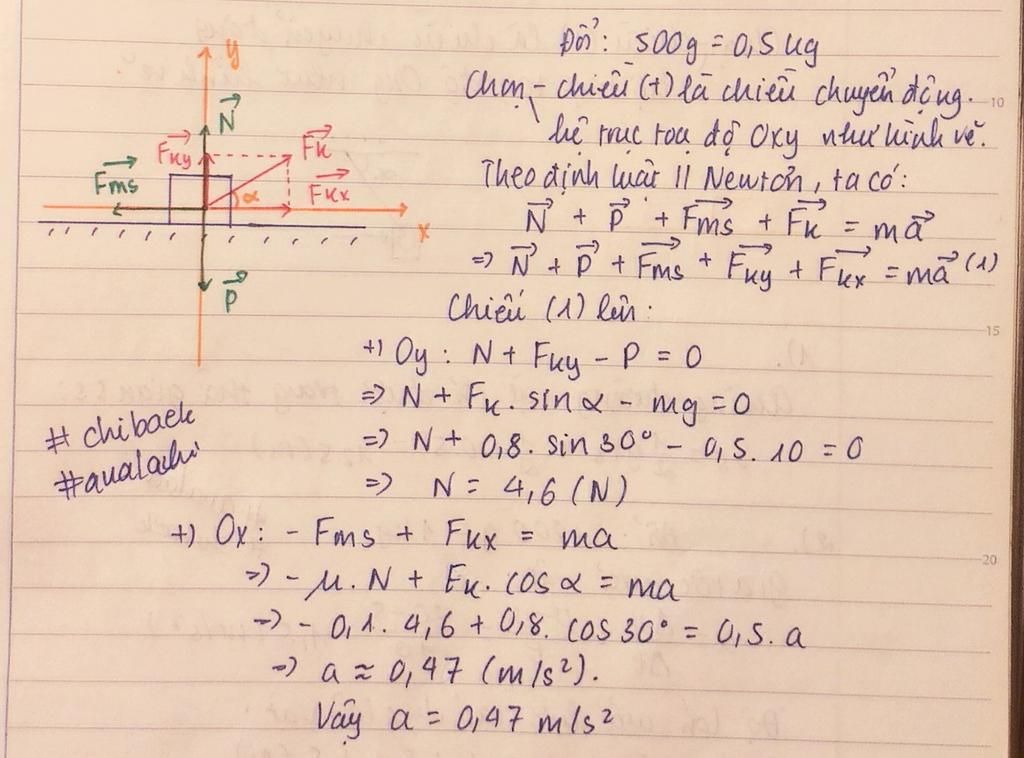 y
N
Fky
Fk
Fms
α
Fkx
x
P
Đổi: 500g = 0,5 kg
Chọn - chiều (+) là chiều chuyển động.
hệ trục toạ độ Oxy như hình vẽ.
Theo định luật II Newton, ta có:
N⃗ + P⃗ + Fms⃗ + Fk⃗ = ma⃗
=> N⃗ + P⃗ + Fms⃗ + Fky⃗ + Fkx⃗ = ma⃗ (1)
Chiếu (1) lên:
+) Oy: N + Fky - P = 0
=> N + Fk. sin α - mg = 0
=> N + 0,8. sin 30° - 0,5. 10 = 0
=> N = 4,6 (N)
# chibaek
#qualachi
+) Ox: - Fms + Fkx = ma
=> - μ. N + Fk. cos α = ma
=> - 0,1. 4,6 + 0,8. cos 30° = 0,5. a
=> a ≈ 0,47 (m/s²).
Vậy a = 0,47 m/s²
10
15
20